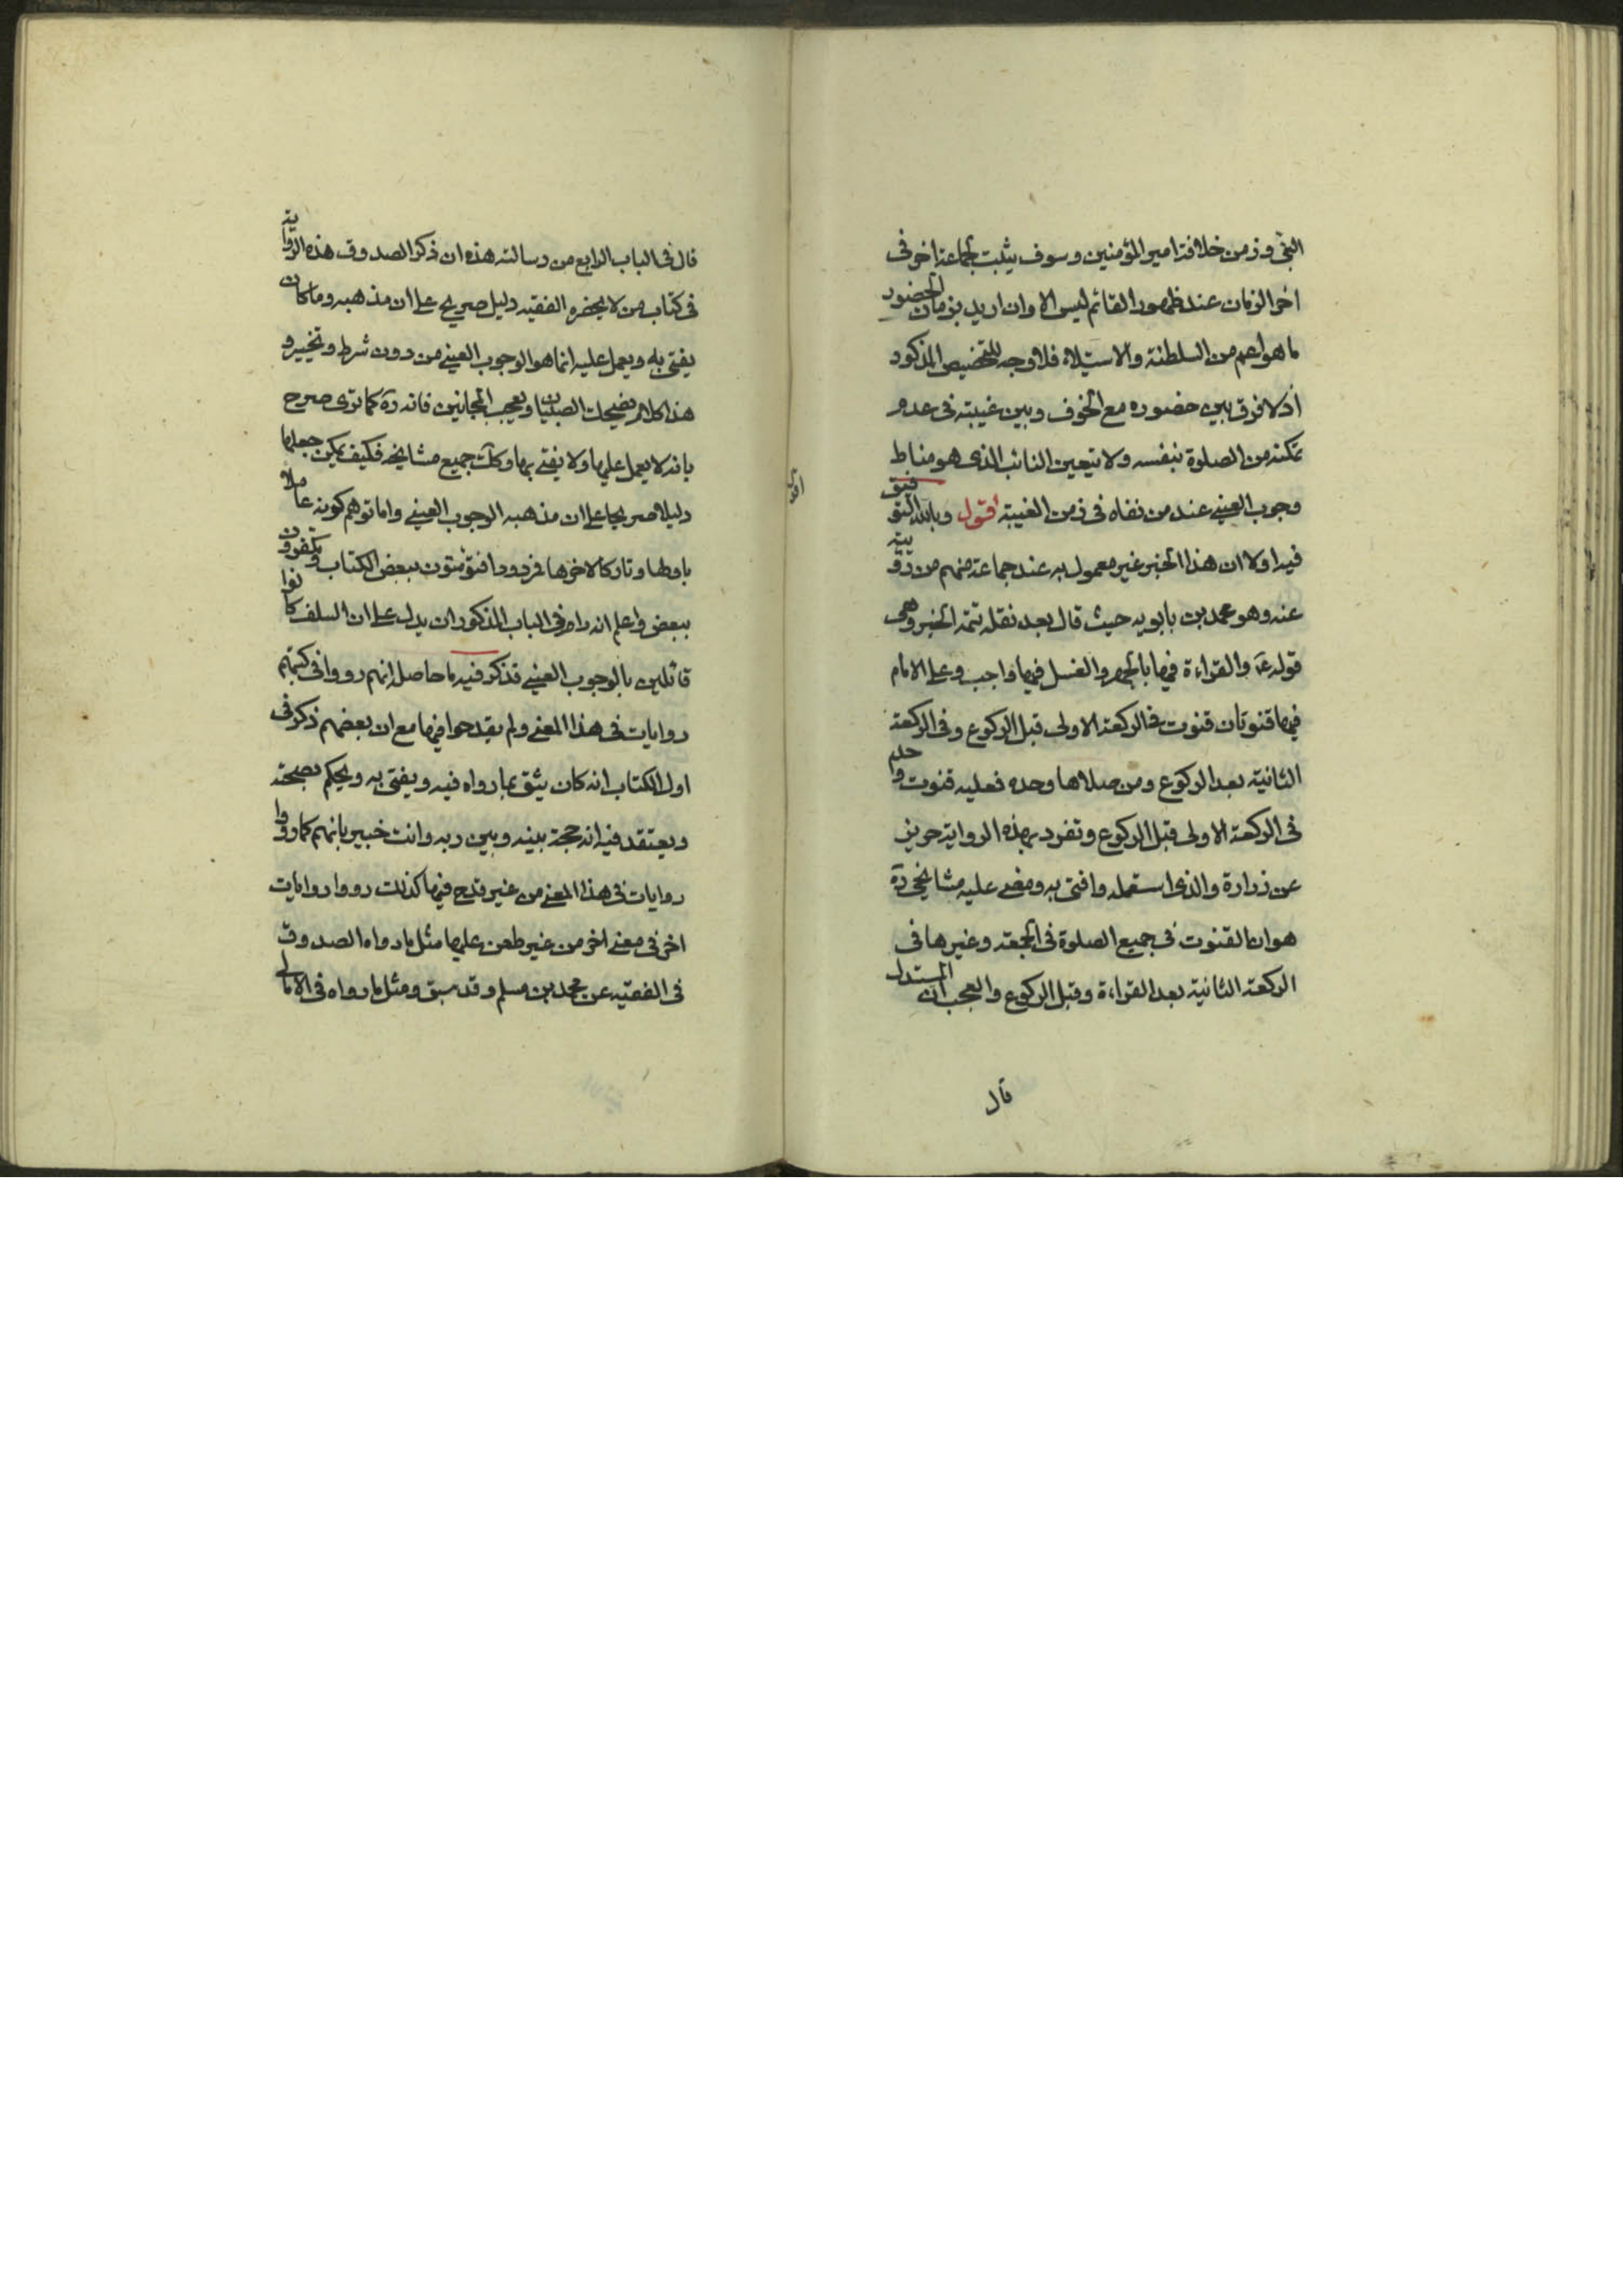 النبي وزمن خلافة امير المؤمنين وسوف يثبت لجماعة اخر في
اخر الزمان عند ظهور القائم ليس الا وان اريد بزمان الحضور
ما هو اعم من السلطنة والاستيلاء فلا وجه للتخصيص المذكور
اذ لا فرق بين حضوره مع الخوف وبين غيبته في عدم
تمكنه من الصلوة بنفسه ولا تيعين النائب الذي هو مناط
وجوب العيني عند من نفاه في زمن الغيبة اقول وبالله التوفيق
فيه اولا ان هذا الخبر غير معمول به عند جماعة منهم من روى
عنه وهو محمد بن بابويه حيث قال بعد نقله تتمة الخبر وهي
قوله ع والقراءة فيها بالجهر والغسل فيها واجب وعلى الامام
فيها قنوتان قنوت في الركعة الاولى قبل الركوع وفي الركعة
الثانية بعد الركوع ومن صلاها وحده فعليه قنوت واحد
في الركعة الاولى قبل الركوع وتفرد بهذه الرواية حريز
عن زرارة والذي استعمله وافتى به ومضى عليه مشايخي ره
هو ان القنوت في جميع الصلوة في الجمعة وغيرها في
الركعة الثانية بعد القراءة وقبل الركوع والعجب ان المستدل
قال
قال في الباب الرابع من رسالته هذه ان ذكر الصدوق هذه الرواية
في كتاب من لا يحضره الفقيه دليل صريح على ان مذهبه وما كان
يفتي به ويعمل عليه انما هو الوجوب العيني من دون شرط وتخيير و
هذا كلام يضحك الصبيان ويعجب المجانين فانه ره كما ترى صرح
بانه لا يعمل عليها ولا يفتي بها وكك جميع مشايخه فكيف يمكن جعلها
دليلا صريحا على ان مذهبه الوجوب العيني واما توهم كونه عاملا
باولها وتاركا لاخرها فمردود افتؤمنون ببعض الكتاب وتكفرون
ببعض واعلم انه رام في الباب المذكور ان يدل على ان السلف كانوا
قائلين بالوجوب العيني فذكر فيه ما حاصله انهم رووا في كتبهم
روايات في هذا المعنى ولم يقدحوا فيها مع ان بعضهم ذكر في
اول الكتاب انه كان يثق بما رواه فيه ويفتي به ويحكم بصحته
ويعتقد فيه انه حجة بينه وبين ربه وانت خبير بانهم كما رووا
روايات في هذا المعنى من غير قدح فيها كذلك رووا روايات
اخر في معنى اخر من غير طعن عليها مثل ما رواه الصدوق
في الفقيه عن محمد بن مسلم وقد سبق ومثل ما رواه في الامالي